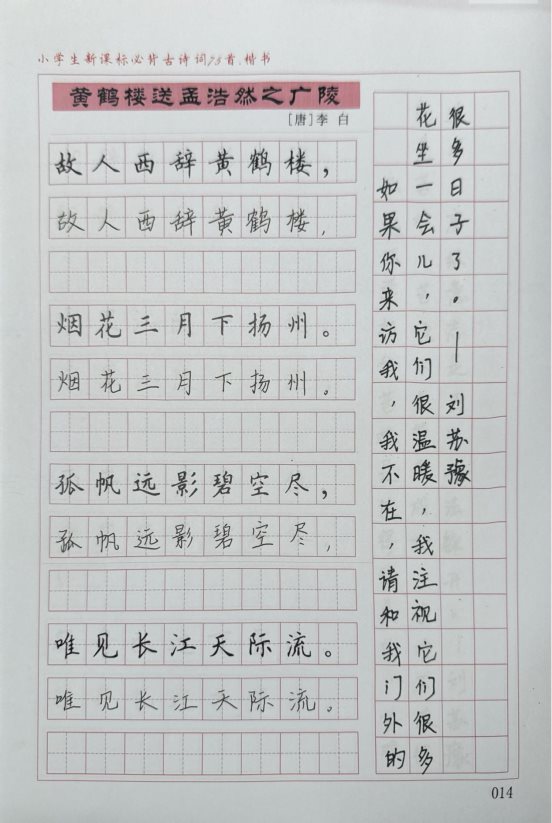 小学生新课标必背古诗词75首.楷书
黄鹤楼送孟浩然之广陵
[唐]李 白
故人西辞黄鹤楼，
故人西辞黄鹤楼，
烟花三月下扬州。
烟花三月下扬州。
孤帆远影碧空尽，
孤帆远影碧空尽，
唯见长江天际流。
唯见长江天际流。
如果你来访我，我不在，请和我门外的
花坐一会儿，它们很温暖，我注视它们很多
很多日子了。—刘苏豫
014